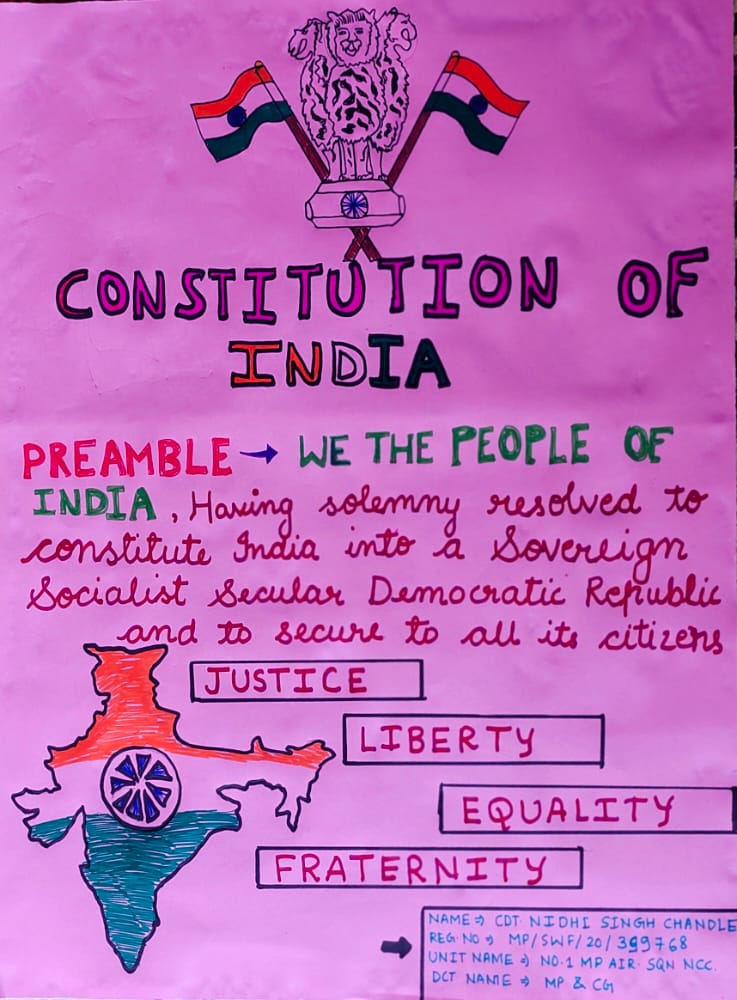 CONSTITUTION OF
INDIA
PREAMBLE → WE THE PEOPLE OF
INDIA, Having solemny resolved to
constitute India into a Sovereign
Socialist Secular Democratic Republic
and to secure to all its citizens
JUSTICE
LIBERTY
EQUALITY
FRATERNITY
NAME ⇒ CDT. NIDHI SINGH CHANDLE
REG. NO ⇒ MP/SWF/20/399768
UNIT NAME ⇒ NO.1 MP AIR. SQN NCC.
DCT NAME ⇒ MP & CG